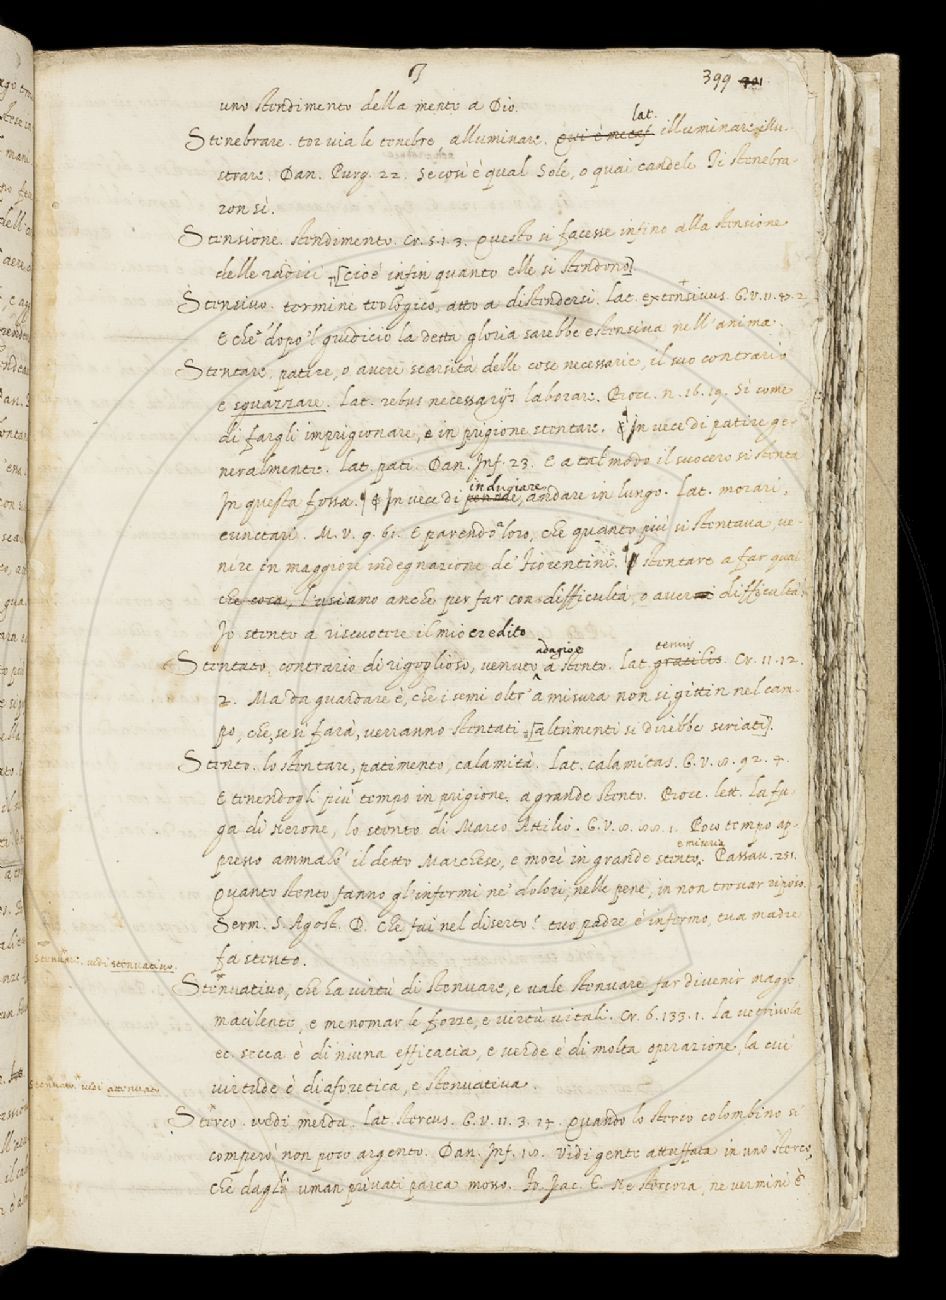 399
uno stendimento della mente a Dio.
lat.
Stenebrare. tor via le tenebre, alluminare. illuminare, illu-
strare. Dan. Purg. 22. Se così è qual Sole, o quai candele Ti stenebra-
ron sì.
Stensione. stendimento. Cr. 5. 1. 3. Questo si facesse infino alla stensione
delle radici [cioè infin quanto elle si stendono].
Stensivo. termine teologico, atto a distendersi. lat. extensivus. G. V. 11. 2
E che dopo 'l giudicio la detta gloria sarebbe estensiva nell' anima.
Stentare. patire, o avere scarsità delle cose necessarie, il suo contrario
è sguazzare. Lat. rebus necessarijs laborare. Bocc. n. 16. 19. Sì come
di fargli imprigionare, e in prigione stentare. In vece di patire ge-
neralmente. lat. pati. Dan. Inf. 23. E a tal modo il suocero si stenta
indugiare
In questa fossa. In vece di andare in lungo. Lat. morari,
cunctari. M. V. 9. 61. E parendo a loro, che quanto più si stentava, ve-
nire in maggiore indegnazione de' Fiorentini. stentare a far qual
che cosa, l'usiamo anche per far con difficultà, o aver difficultà.
Io stento a riscuotere il mio credito
adagio tenuis
Stentato, contrario di rigoglioso, venuto a stento. lat. gracilis. Cr. 11. 12.
2. Ma da guardare è, che i semi oltr' a misura non si gittin nel cam-
po, che, se si farà, verranno stentati [altrimenti si direbbe seriati].
Stento. lo stentare, patimento, calamità. Lat. calamitas. G. V. 8. 92. 4.
E tenendogli più tempo in prigione. a grande stento. Bocc. lett. la fu-
ga di Nerone, lo stento di Marco Attilio. G. V. 8. 88. 1. Poco tempo ap-
e miseria
presso ammalò il detto Marchese, e morì in grande stento. Passav. 251.
Quanto stento fanno gl'infermi ne' dolori, nelle pene, in non trovar riposo.
Serm. S. Agost. D. Che fai nel diserto? tuo padre è infermo, tua madre
fa stento.
Stenuare. vedi stenuativo.
Stenuativo, che ha virtù di stenuare, e vale stenuare far divenir magro
macilente, e menomar le forze, e virtù vitali. Cr. 6. 133. 1. la vettivola
ec. secca è di niuna efficacia, e verde è di molta operazione, la cui
virtude è diaforetica, e stenuativa.
Stenuato. vedi attenuat
Sterco. vedi merda. Lat. stercus. G. V. 11. 3. 14. Quando lo sterco colombino si
comperò non poco argento. Dan. Inf. 18. Vidi gente attuffata in uno sterco,
che dagli uman privati parea mosso. Fr. Jac. T. Ne stercora, ne vermini è